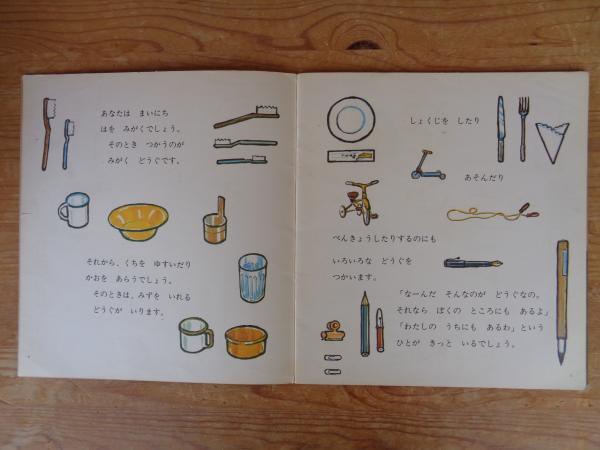 あなたは まいにち
はを みがくでしょう。
そのとき つかうのが
みがく どうぐです。
それから、くちを ゆすいだり
かおを あらうでしょう。
そのときは、みずを いれる
どうぐが いります。
しょくじを したり
あそんだり
べんきょうしたりするのにも
いろいろな どうぐを
つかいます。
「なーんだ そんなのが どうぐなの。
それなら ぼくの ところにも あるよ」
「わたしの うちにも あるわ」という
ひとが きっと いるでしょう。